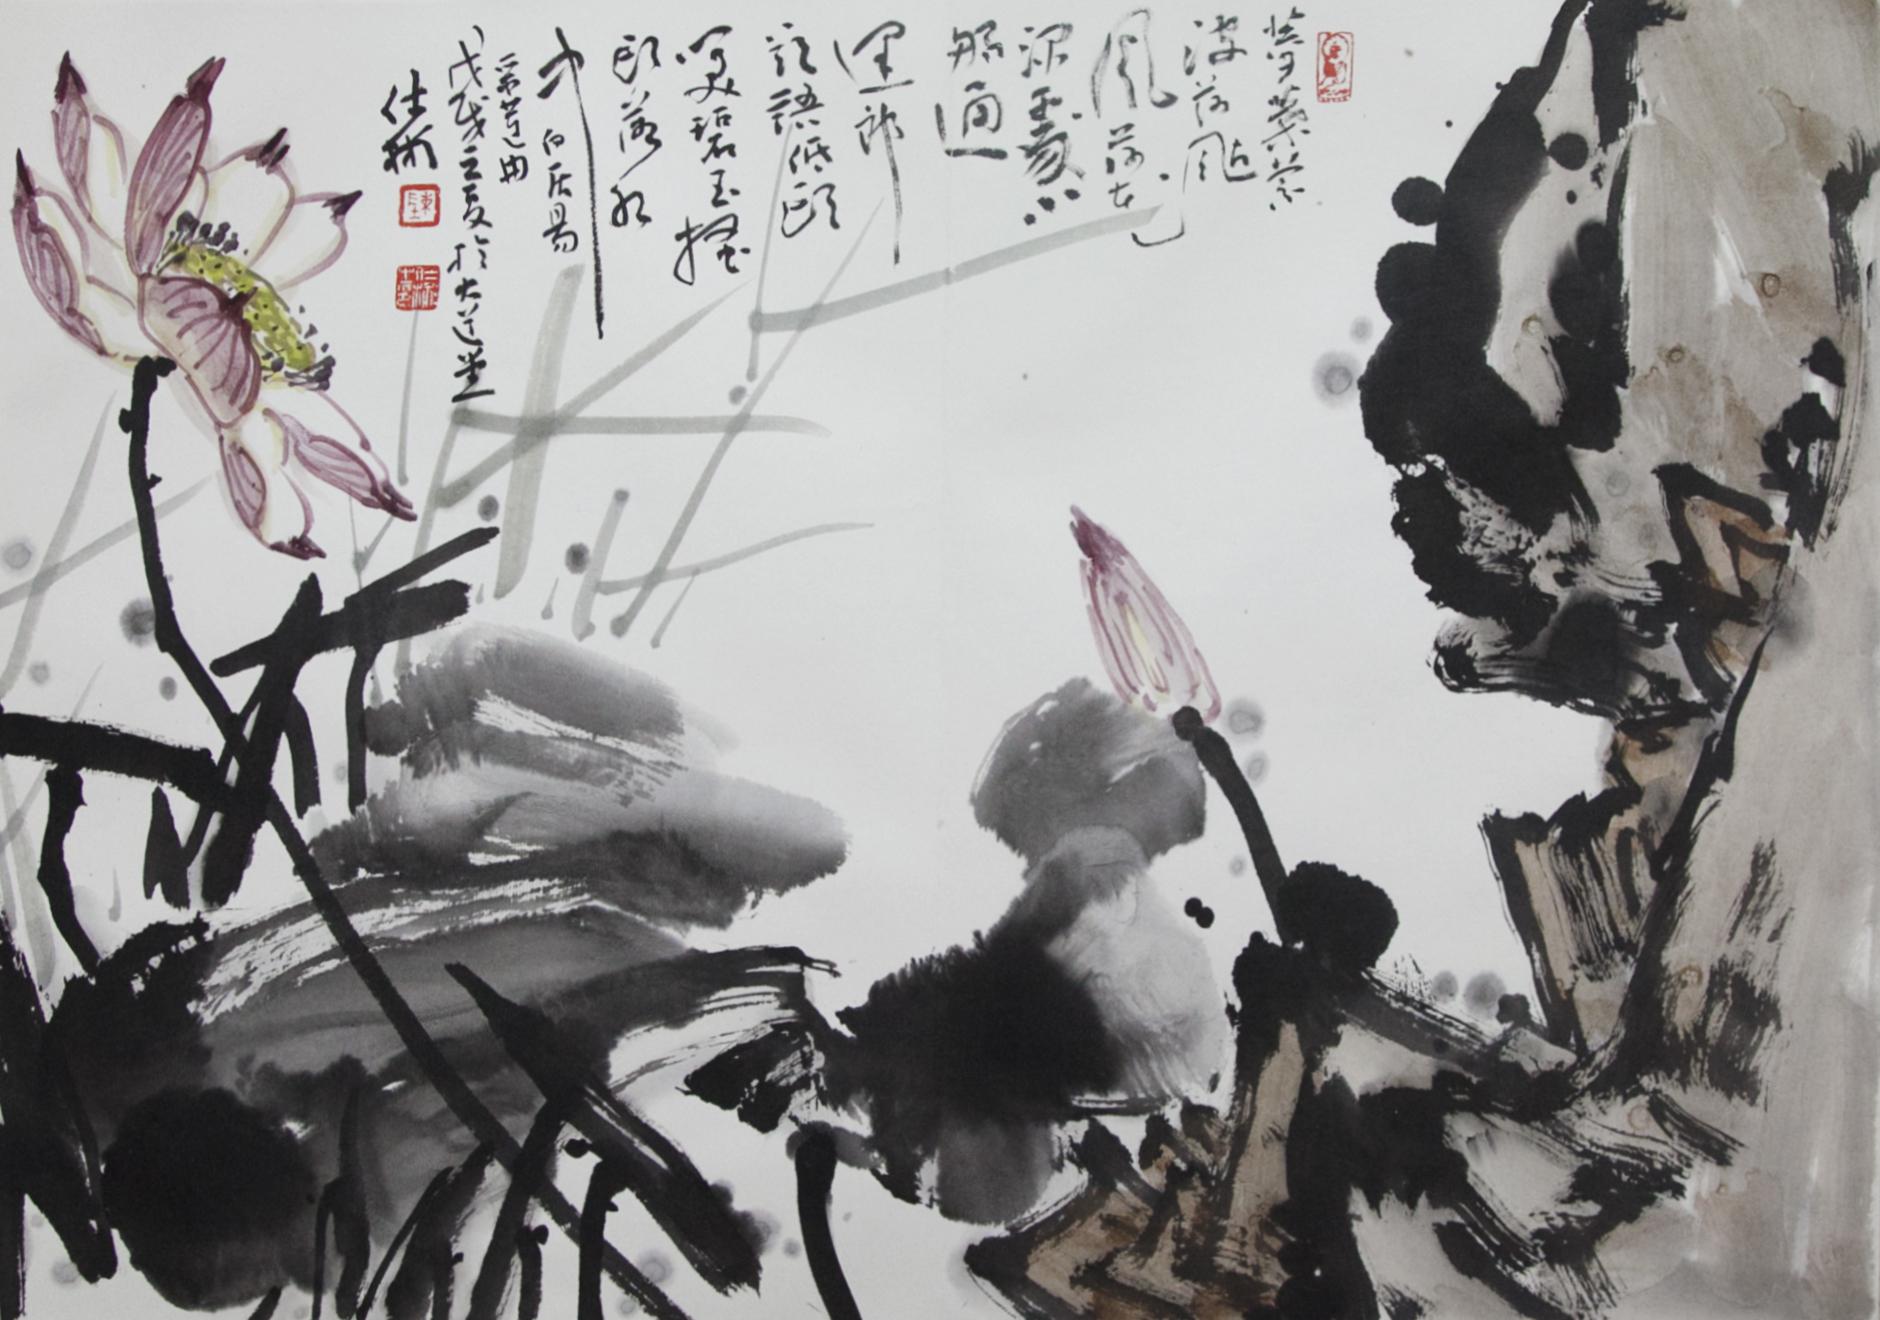 菱葉縈
波荷飐
風荷花
深處小
船通
逢郎
欲語低頭
笑碧玉搔
頭落水
中 白居易
采蓮曲
戊戌立夏於大道堂
仕彬